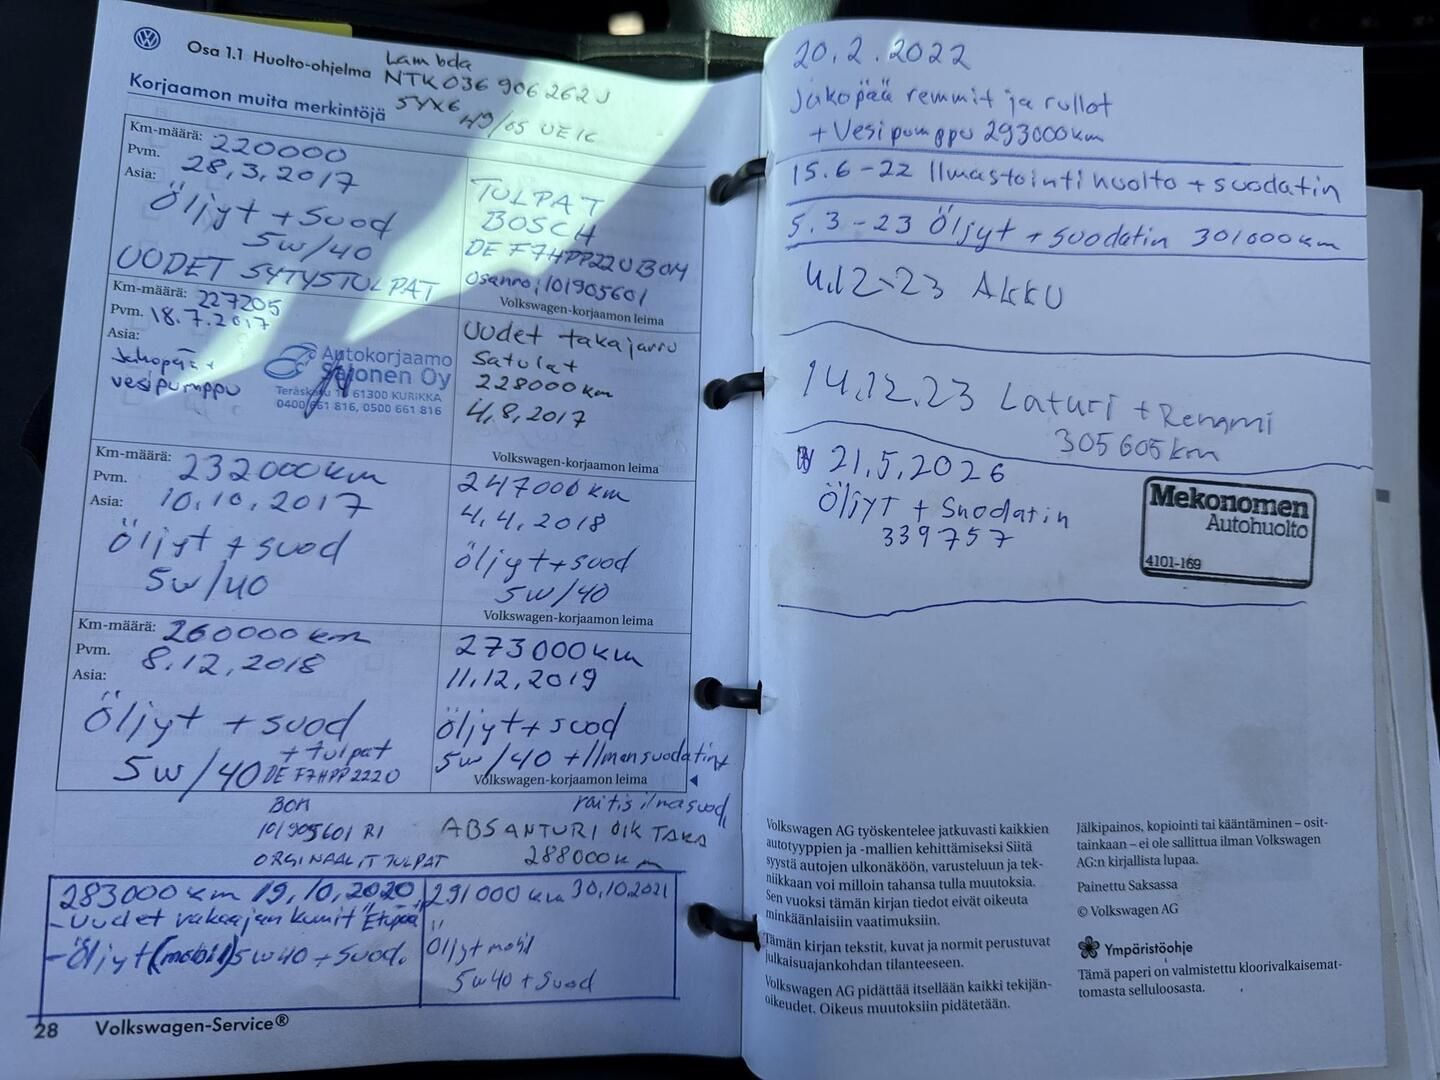 Osa 1.1 Huolto-ohjelma
Lambda
NTK 036 906 262 J
5YX6
49/05 UE16
Korjaamon muita merkintöjä
Km-määrä: 220000
Pvm. 28.3.2017
Asia:
Öljyt + suod
5w/40
UUDET SYTYSTULPAT
TULPAT
BOSCH
DE F7HPP22U BOM
Osanro: 101905601
Volkswagen-korjaamon leima
Km-määrä: 227205
Pvm. 18.7.2017
Asia:
Jakopää +
vesipumppu
Autokorjaamo
Salonen Oy
61300 KURIKKA
0400 661 816, 0500 661 816
Uudet takajarru
Satulat
228000 km
4.8.2017
Volkswagen-korjaamon leima
Km-määrä: 232000km
Pvm. 10.10.2017
Asia:
Öljyt + suod
5w/40
247000 km
4.4.2018
Öljyt + suod
5w/40
Volkswagen-korjaamon leima
Km-määrä: 260000 km
Pvm. 8.12.2018
Asia:
Öljyt + suod
+ tulpat
5w/40 DE F7HPP222U
BOM
101905601 R1
ORGINAALIT TULPAT
273000km
11.12.2019
Öljyt + suod
5w/40 + Ilmansuodatin+
Volkswagen-korjaamon leima
raitis ilmasuod
ABS ANTURI OIK TAKA
288000km
283000 km 19.10.2020
- Uudet vakaajan kumit "Etupää"
- Öljyt (mobil) 5w40 + suod.
291000 km 30.10.2021
Öljyt mobil
5w40 + suod
28 Volkswagen-Service®
20.2.2022
jakopää remmit ja rullat
+ Vesipumppu 293000km
15.6-22 Ilmastointihuolto + suodatin
5.3-23 Öljyt + suodatin 301600km
4.12-23 AKKU
14.12.23 Laturi + Rengmi
305605km
21.5.2026
Öljyt + Suodatin
339757
Mekonomen
Autohuolto
4101-169
Volkswagen AG työskentelee jatkuvasti kaikkien
autotyyppien ja -mallien kehittämiseksi Siitä
syystä autojen ulkonäköön, varusteluun ja tek-
niikkaan voi milloin tahansa tulla muutoksia.
Sen vuoksi tämän kirjan tiedot eivät oikeuta
minkäänlaisiin vaatimuksiin.
Tämän kirjan tekstit, kuvat ja normit perustuvat
julkaisuajankohdan tilanteeseen.
Volkswagen AG pidättää itsellään kaikki tekijän-
oikeudet. Oikeus muutoksiin pidätetään.
Jälkipainos, kopiointi tai kääntäminen – osit-
tainkaan – ei ole sallittua ilman Volkswagen
AG:n kirjallista lupaa.
Painettu Saksassa
© Volkswagen AG
Ympäristöohje
Tämä paperi on valmistettu kloorivalkaisemat-
tomasta selluloosasta.